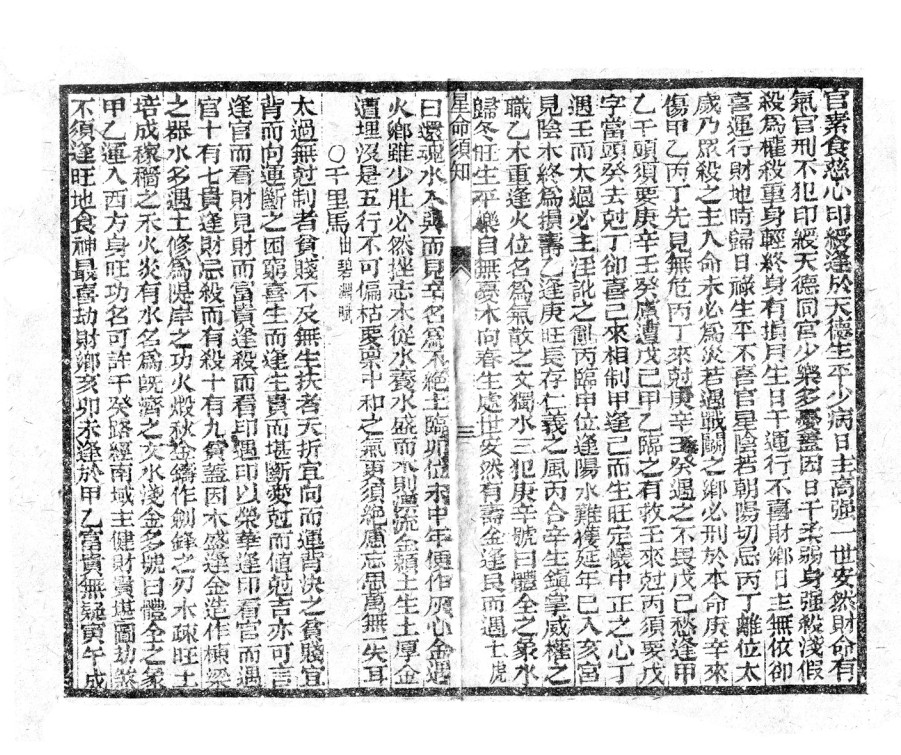 官素食慈心印綬逢於天德生平少病日主高强一世安然財命有
氣官刑不犯印綬天德同宮少樂多憂蓋因日干柔弱身强殺淺假
殺為權殺重身輕終身有損月生日干運行不喜財鄉日主無依卻
喜運行財地時歸日祿生平不喜官星陰若朝陽切忌丙丁離位太
歲乃眾殺之主入命未必為災若遇戰鬭之鄉必刑於本命庚辛來
傷甲乙丙丁先見無危丙丁來尅庚辛壬癸遇之不畏戊己愁逢甲
乙干頭須要庚辛壬癸慮遭戊己甲乙臨之有救壬來尅丙須要戊
字當頭癸去尅丁卻喜己來相制甲逢己而生旺定懷中正之心丁
遇壬而太過必主淫訛之亂丙臨申位逢陽水難獲延年己入亥宮
見陰木終為損壽乙逢庚旺長存仁義之風丙合辛生鎮掌威權之
職乙木重逢火位名為氣散之文獨水三犯庚辛號曰體全之象水
歸冬旺生平樂自無憂木向春生處世安然有壽金逢艮而遇土虎
星命須知
三
曰還魂水入巽而見辛名為不絕土臨卯位未中年便作灰心金遇
火鄉雖少壯必然挫志木從水養水盛而木則漂流金賴土生土厚金
遭埋沒是五行不可偏枯要稟中和之氣更須絕慮忘思萬無一失耳
○千里馬
太過無尅制者貧賤不及無生扶者夭折宜向而運背決之貧賤宜
背而向運斷之困窮喜生而逢生貴而堪斷愛尅而值尅吉亦可言
逢官而看財見財而富貴逢殺而看印遇印以榮華逢印看官而遇
官十有七貴逢財忌殺而有殺十有九貧蓋因木盛逢金造作棟梁
之器水多遇土修為堤岸之功火煅秋金鑄作劍鋒之刃木疎旺土
培成稼穡之禾火炎有水名為既濟之文水淺金多號曰體全之象
甲乙運入西方身旺功名可許壬癸路經南域主健財貴堪圖劫煞
不須逢旺地食神最喜劫財鄉亥卯未逢於甲乙富貴無疑寅午戌